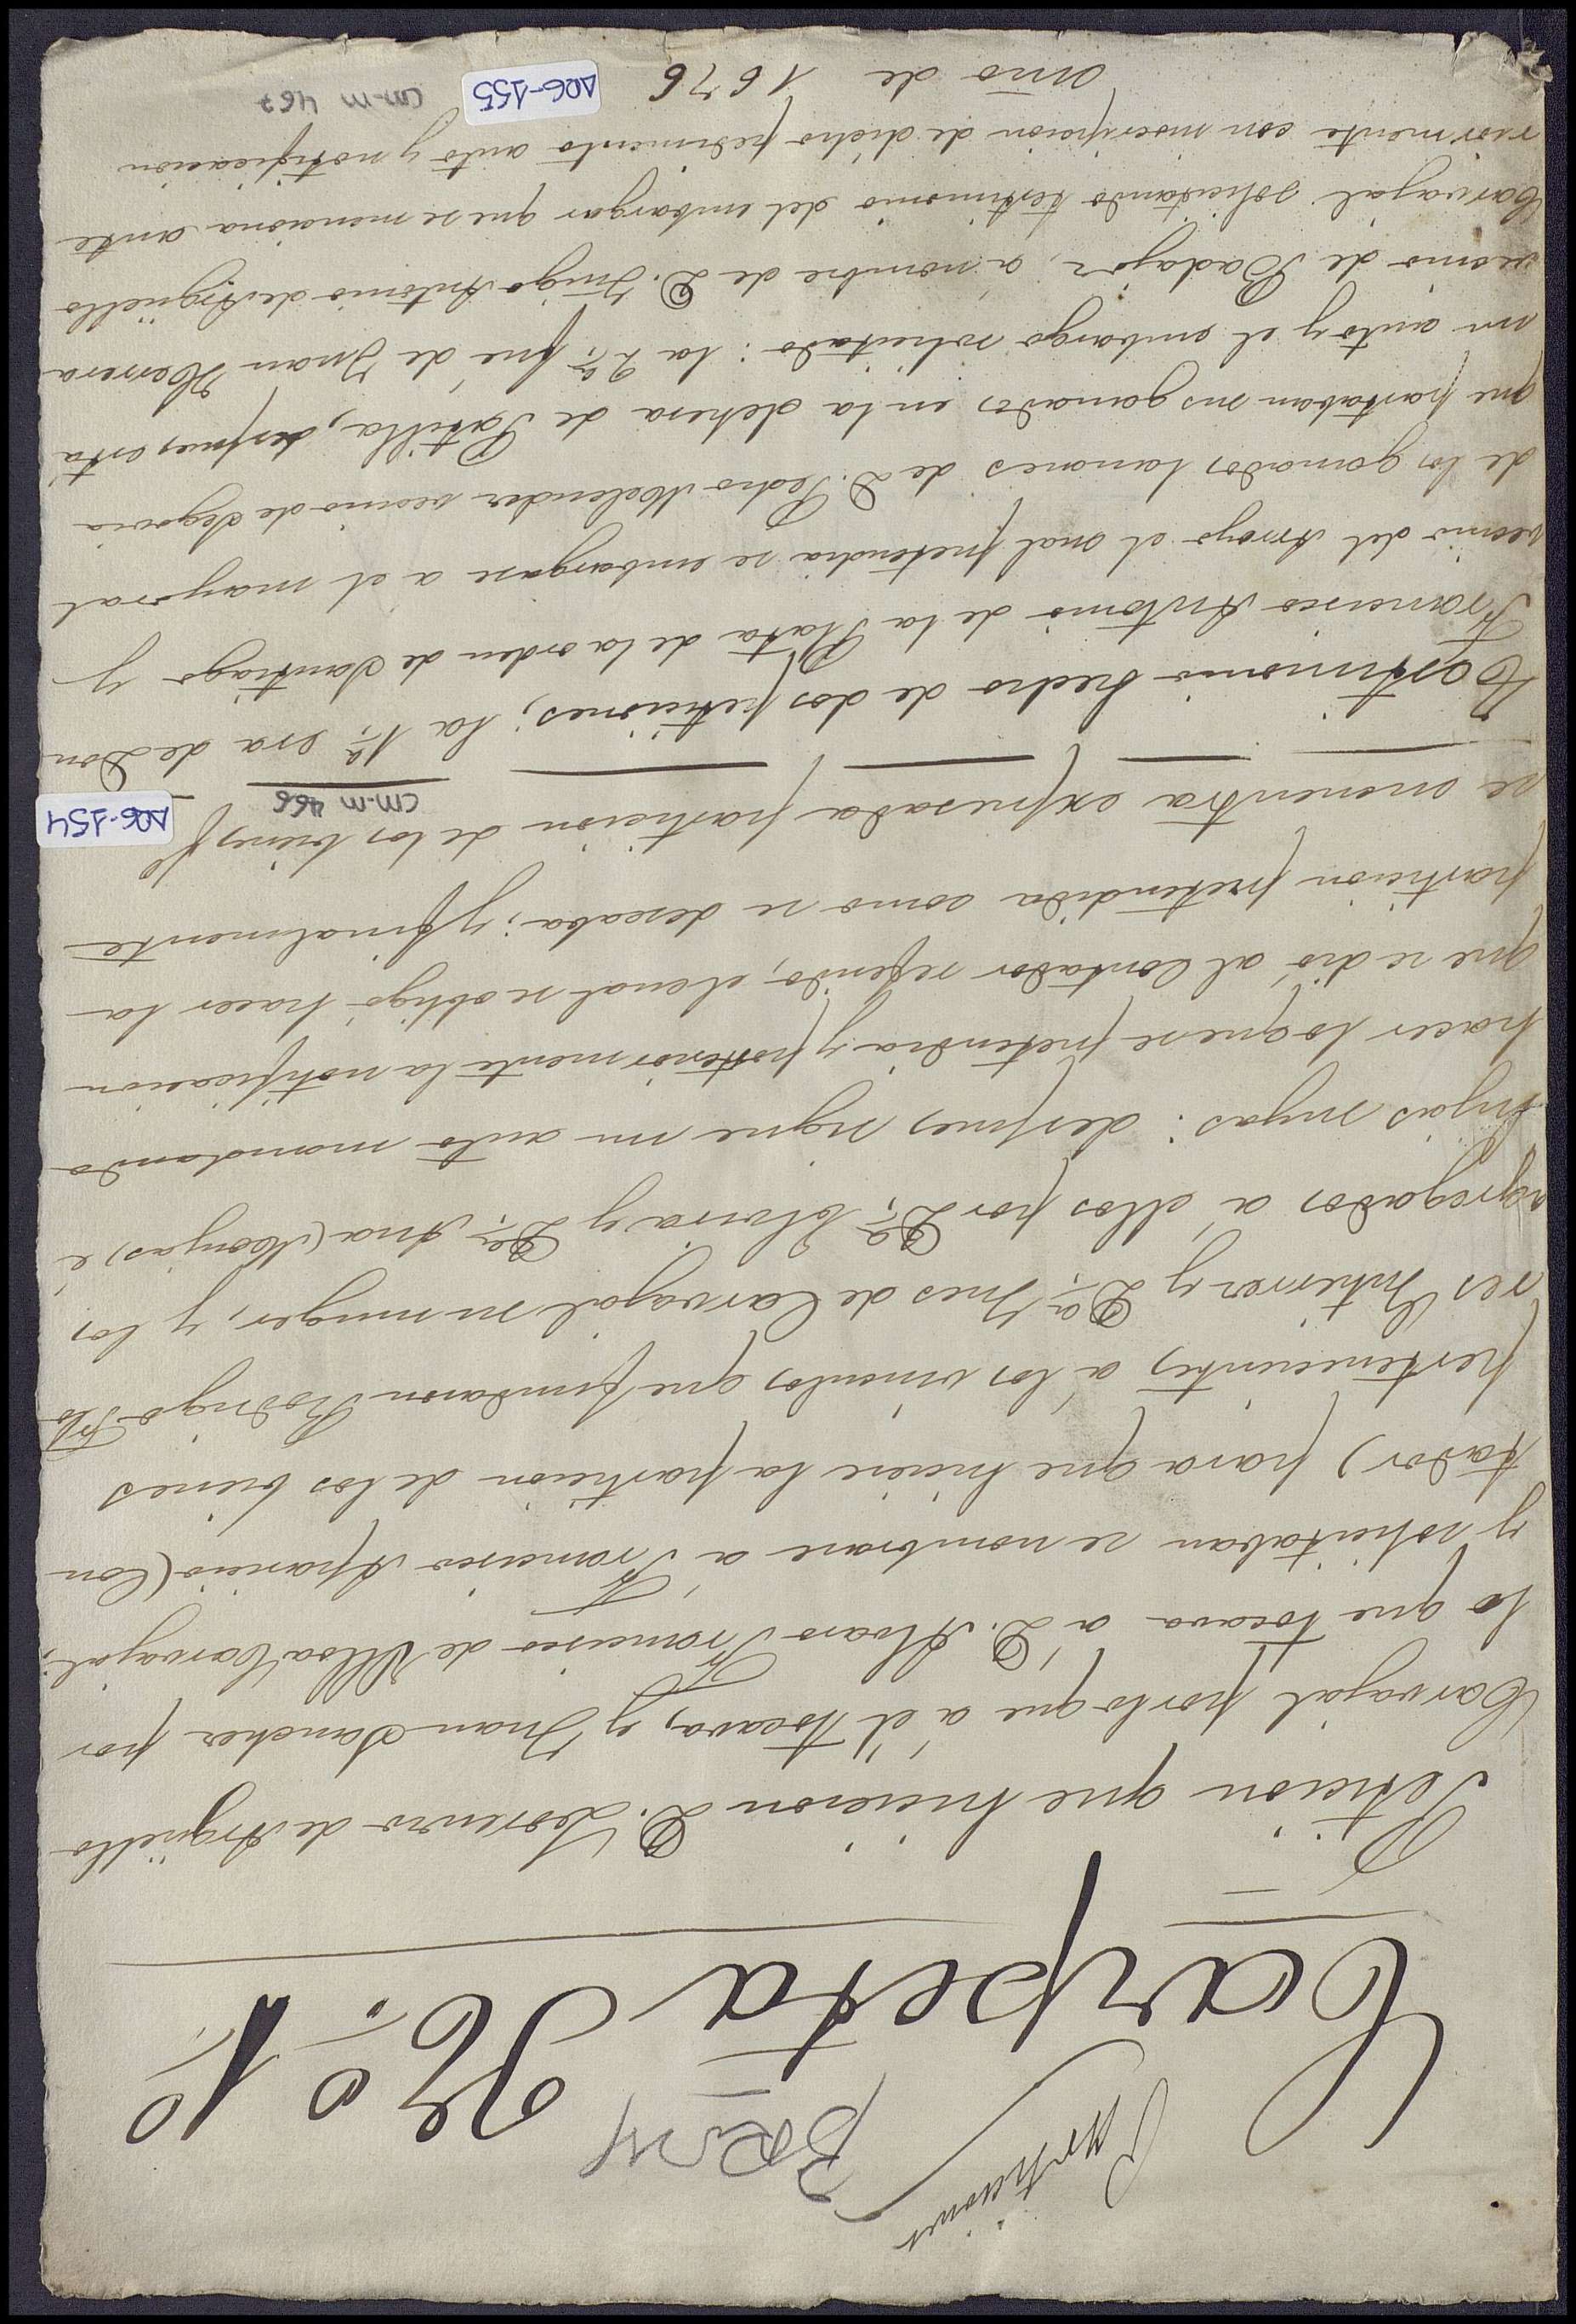 Peticiones
Carpeta N.º 1º
Petición que hicieron D. Lorenzo de Argüello
Carvajal por lo que á él tocava, y Juan Sanchez por
lo que tocava á D. Alvaro Francisco de Ulloa Carvajal;
y solicitaban se nombrase á Francisco Aparicio (Con
tador) para que hiciese la partición de los bienes
pertenecientes á los vinculos que fundaron Rodrigo Flo
res Gutierrez y Dª Ines de Carvajal su muger, y los
agregados á ellos por Dª Elvira y Dª Ana (Monjas) é
hijas suyas: despues sigue un auto mandando
hacer lo que se pretendia y posteriormente la notificacion
que se dió al Contador referido, el cual se obligó hacer la
particion pretendida como se deseaba; y finalmente
se encuentra expresada particion de los bienes fº
cm-m 466
AR6-154
Testimonio hecho de dos peticiones; la 1ª era de Don
Francisco Antonio de la Plata de la orden de Santiago y
vecino del Arroyo el cual pretendia se embargase a el mayoral
de los ganados lanares de D. Pedro Melendez vecino de Segovia
que pastaban sus ganados en la dehesa de Patilla, despues está
un auto y el embargo solicitado: la 2ª fué de Juan Herrera
vecino de Badajoz, á nombre de D. Iñigo Antonio de Argüello
Carvajal solicitando testimonio del embargar que se menciona ante
riormente con inscripcion de dicho pedimento auto y notificacion
año de 1676
AR6-155
cm-m 467